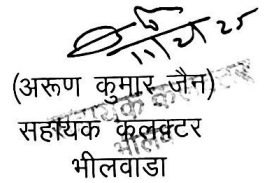 11/2/25
(अरूण कुमार जैन)
सहायक कलक्टर
भीलवाडा